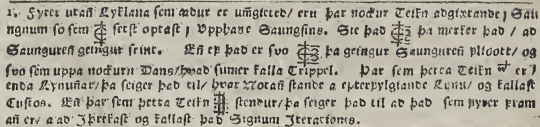 1. Fyrer utañ Lyklana sem adur er umgieted/ eru þar nockur Teikn adgiætande; Sau
ngnum so sem setst optast i Upphafe Saungsins. Sie það þa merker það / ad
Saunguren geingur seint. Eñ ef það er svo þa geingur Saungureñ fliott/ og
svo sem uppa nockurn Dans/ hvad sumer kalla Trippel. Þar sem þetta Teikn w er i
enda Lynunar/ þa seiger það til/ hvar Notañ stande a epterfylgiande Lynu/ og kallast
Custos. Eñ þar sem þetta Teikn stendur/ þa seiger það til ad það sem fyrer fram
añ er/ a ad Itrekast og kallast það Signum Iterationis.